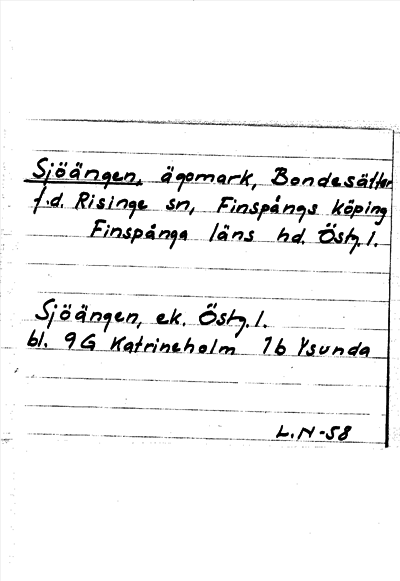 Sjöängen, ägomark, Bondesätter
f.d. Risinge sn, Finspångs köping
Finspånga läns hd. Östg. l.
Sjöängen, ek. Östg. l.
bl. 9G Katrineholm 1b Ysunda
L.N-58